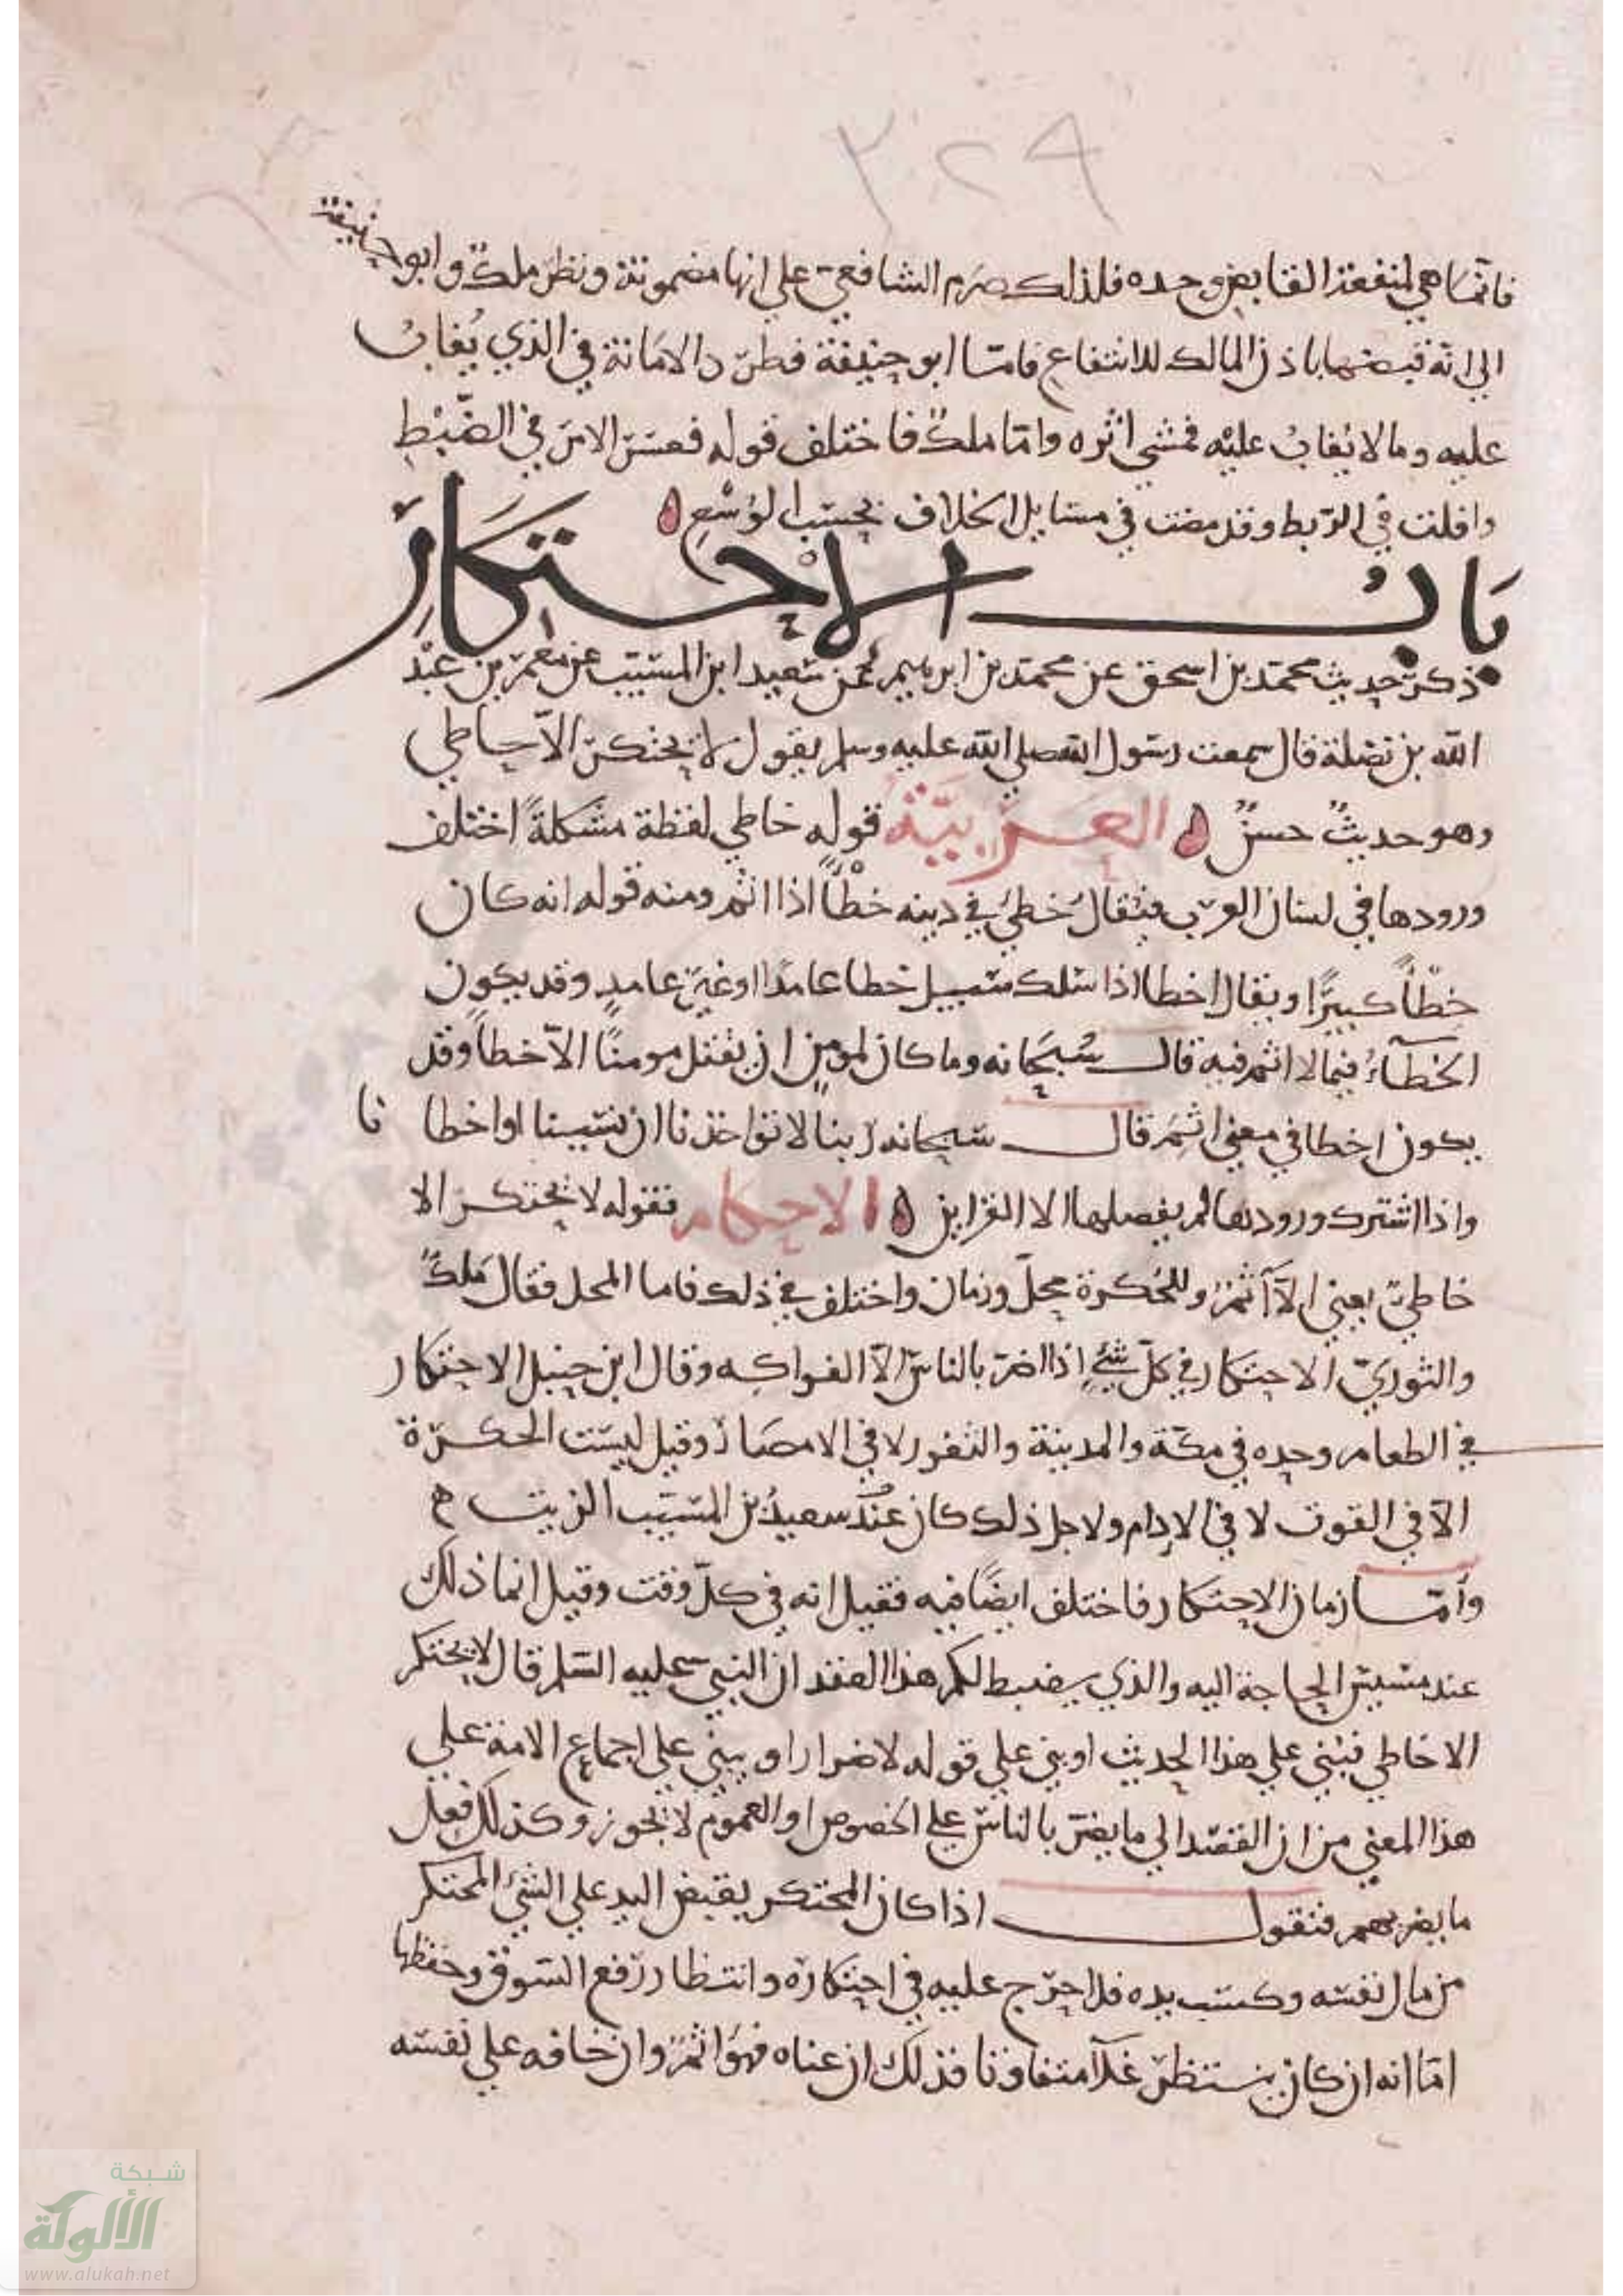 ٣٢٩
فانما هي لمنفعة القابض وحده فلذلك صرم الشافعي على انها مضمونة ونظر ملك وابو حنيفة
الى انه قبضها باذن المالك للانتفاع فاما ابو حنيفة فطرد الامانة في الذي يُغابُ
عليه وما لا يُغابُ عليه فمشى اثره واما ملك فاختلف قوله فعسر الامر في الضبط
وافلت في الربط وقد مضت في مسايل الخلاف بحسب الوُسْعِ
بابُ الاحتكار
ذكر حديث محمد بن اسحق عن محمد بن ابرهيم عن سعيد ابن المسيب عن معمر بن عبد
الله بن نضلة قال سمعت رسول الله صلى الله عليه وسلم يقول لا يحتكر الا خاطي
وهو حديثٌ حسنٌ العربيّة قوله خاطي لفظة مشكلةً اختلف
ورودها في لسان العرب فيُقالُ خطئ في دينه خطْأً اذا اثم ومنه قوله انه كان
خطْأً كبيرًا ويقال اخطا اذا سلك سبيل خطا عامدًا او غير عامدٍ وقد يكون
الخطآءُ فيما لا اثم فيه قال سُبحانه وما كان لمومنٍ ان يقتل مومنًا الا خطأً وقد
يكون اخطا في معنى اثِمَ قال سبحانه ربنا لا تواخذنا ان نسينا او اخطا نا
واذا اشترك ورودها لم يفصلها الا القراين الاحكام فقوله لا يحتكر الا
خاطئ يعني الا آثمٌ وللحُكرة محلّ وزمان واختلف في ذلك فاما المحل فقال ملك
والثوريّ الاحتكار في كلّ شئٍ اذا اضر بالناس الا الفواكه وقال ابن حنبل الاحتكار
في الطعام وحده في مكة والمدينة والثغور لا في الامصار وقيل ليست الحكرة
الا في القوت لا في الإدام ولاجل ذلك كان عند سعيد بن المسيب الزيت ه
وأمّا زمان الاحتكار فاختلف ايضًا فيه فقيل انه في كلّ وقت وقيل انما ذلك
عند مسيس الحاجة اليه والذي يضبط لكم هذا العقد ان النبي عليه السلم قال لا يحتكر
الا خاطي فبُني على هذا الحديث او بني على قوله لا ضرار او يبنى على اجماع الامة على
هذا المعنى من ان القصد الى ما يضر بالناس على الخصوص او العموم لا يجوز وكذلك فعل
ما يضر بهم فنقول اذا كان المحتكر يقبض اليد على الشئ المحتكر
من مال نفسه وكسب يده فلا حرج عليه في احتكاره وانتظار رفع السوق وحفظها
اما انه ان كان ينتظر غلآ متفاوتا فذلك ان عناه فهو اثمٌ وان خافه على نفسه
شبكة
الألوكة
www.alukah.net